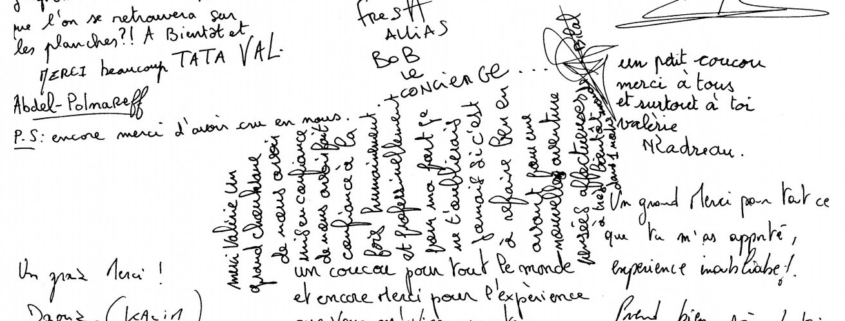 que l'on se retrouvera sur
les planches?! A Bientôt et
MERCI beaucoup TATA VAL.
Abdel-Polnareff
P.S: encore merci d'avoir cru en nous.
FRESH
ALLIAS
BOB
LE
CONCIERGE...
Bilal
un petit coucou
merci à tous
et surtout à toi
valérie
merci Valérie un
grand chouchane
de nous avoir
mis en confiance
de nous avoir fait
confiance à la
fois humainement
et professionnellement
pour ma part je
ne t'oublierais
jamais si c'est
à refaire ben en
avant pour une
nouvelle aventure
pensées affectueuses
à très bientôt
Un grand Merci pour tout ce
que tu m'as apporté,
experience inoubliable!
Un gros Merci!
(KACIM)
un coucou pour tout le monde
et encore Merci pour l'expérience
que vous
Prend bien